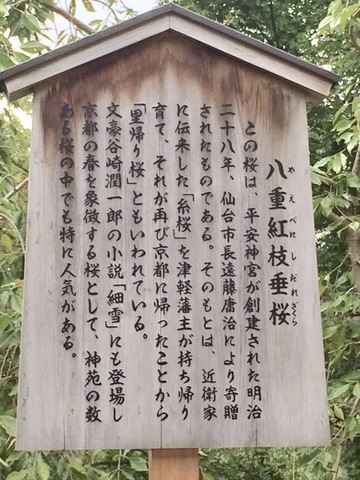 八重紅枝垂桜
やえべにしだれざくら
この桜は、平安神宮が創建された明治
二十八年、仙台市長遠藤庸治により寄贈
されたものである。そのもとは、近衛家
に伝来した「糸桜」を津軽藩主が持ち帰り
育て、それが再び京都に帰ったことから
「里帰り桜」ともいわれている。
文豪谷崎潤一郎の小説「細雪」にも登場し
京都の春を象徴する桜として、神苑の数
ある桜の中でも特に人気がある。